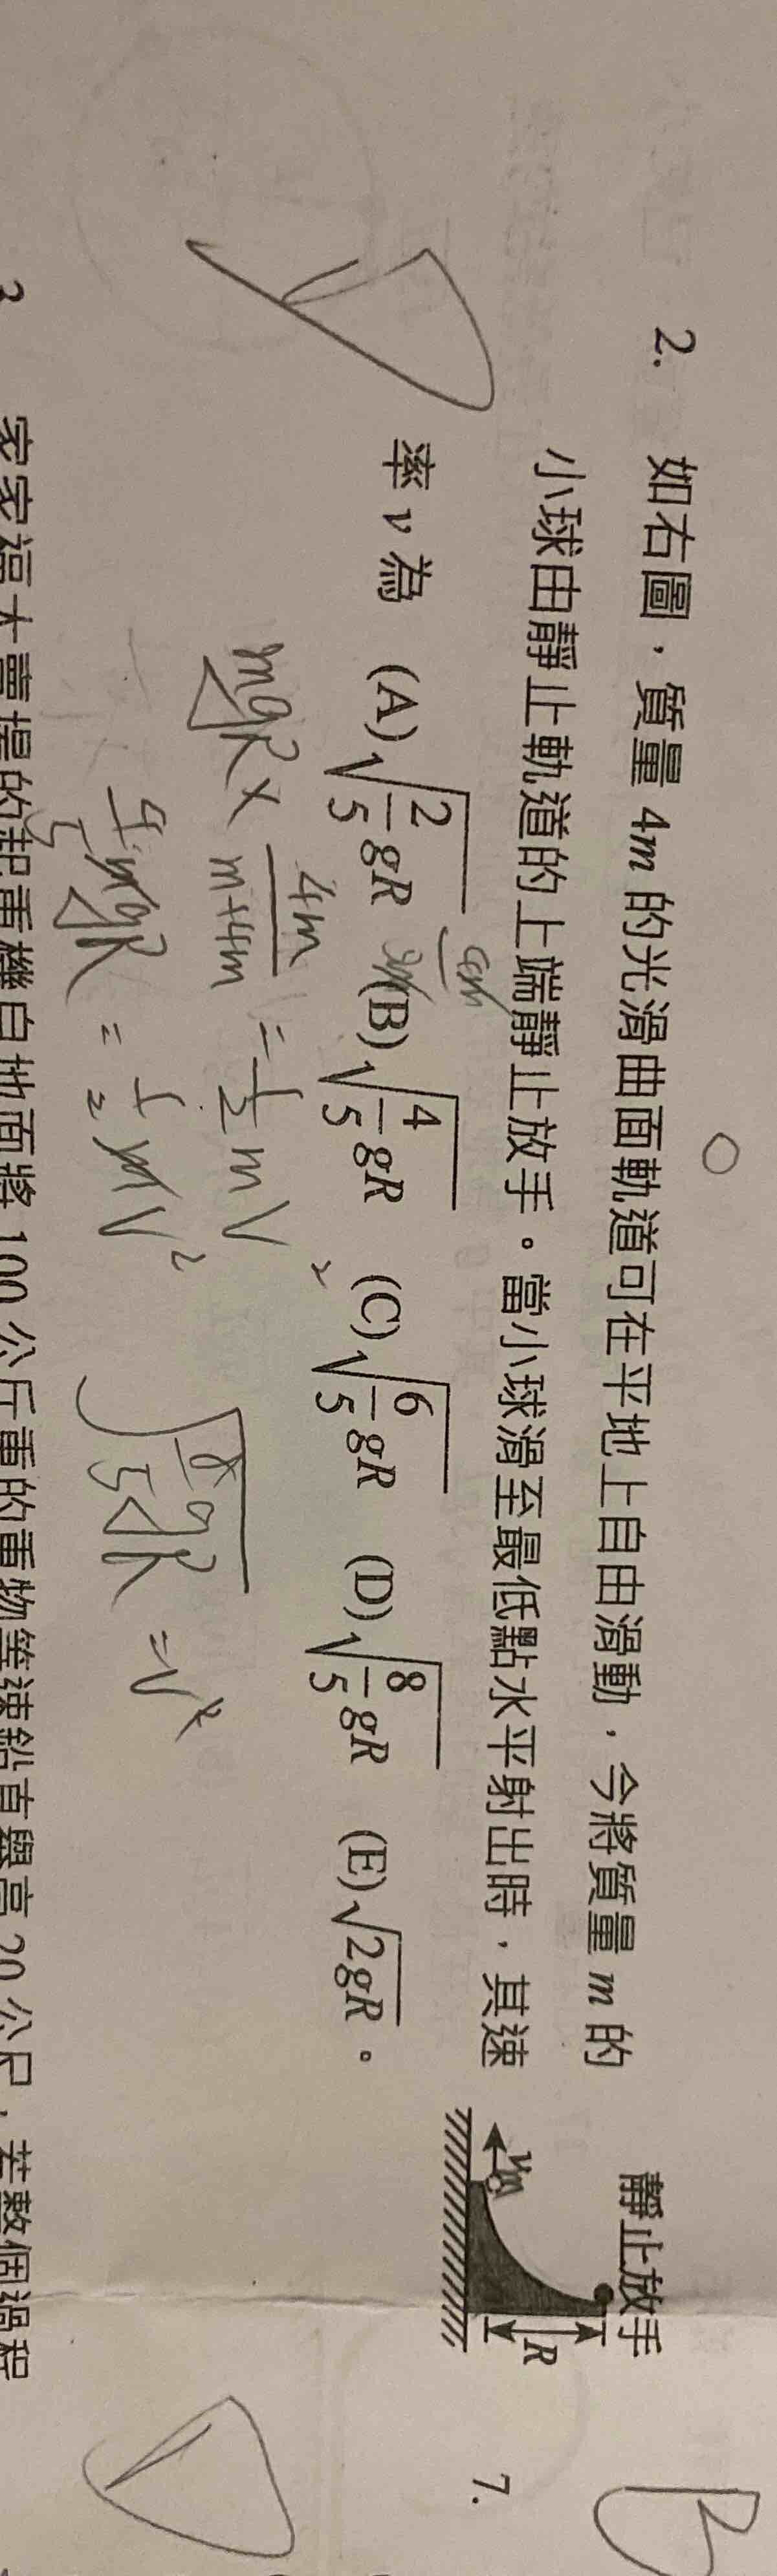 2. 如右圖，質量 4m 的光滑曲面軌道可在平地上自由滑動，今將質量 m 的
小球由靜止軌道的上端靜止放手。當小球滑至最低點水平射出時，其速
率 v 為 (A)√(2/5 gR) (B)√(4/5 gR) (C)√(6/5 gR) (D)√(8/5 gR) (E)√(2gR)。
靜止放手
R
v
m
mgR × 4m/(m+4m) = 1/2 mV²
4/5 mgR = 1/2 mV²
√(8/5 gR) = V
D
7.
B
D
3. 家家福大賣場的起重機自地面將 100 公斤重的重物等速鉛直舉高 20 公尺，若整個過程